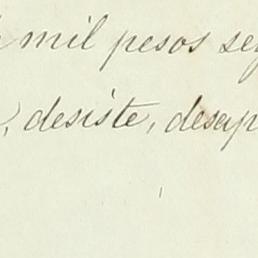 mil pesos seg
, desiste, desap